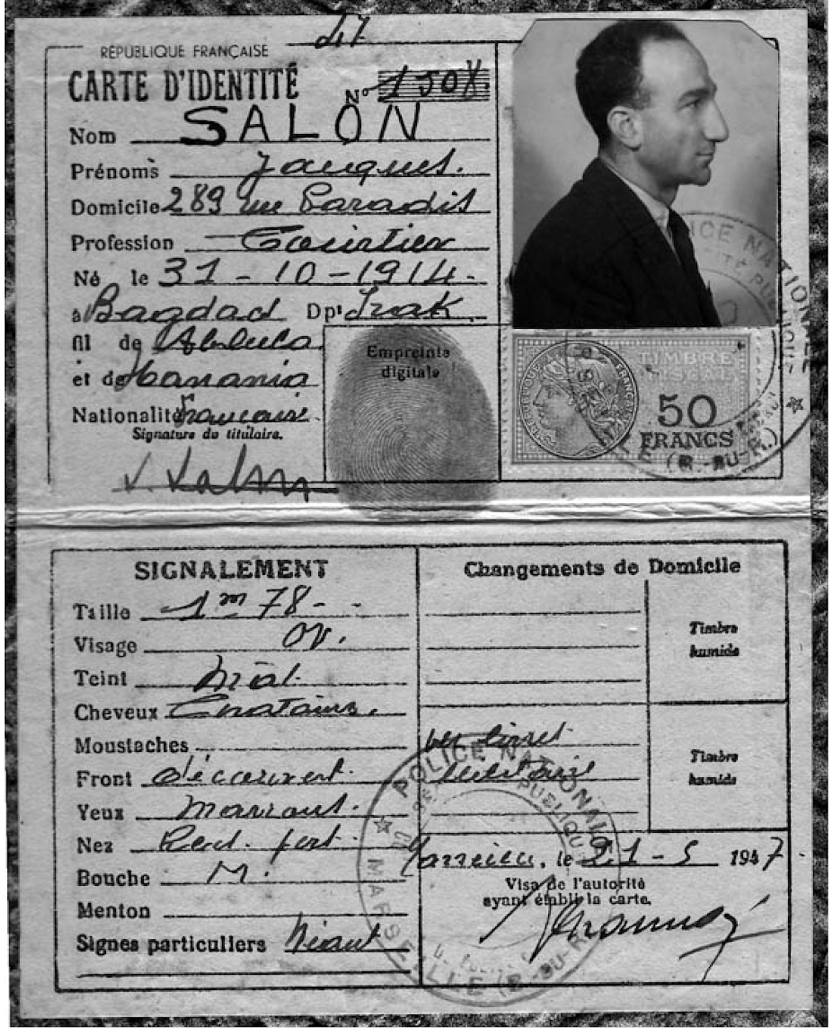 47
RÉPUBLIQUE FRANÇAISE
CARTE D'IDENTITÉ
N° 1508
Nom SALON
Prénoms Jacques.
Domicile 289 rue Paradis
Profession Courtier
Né le 31-10-1914.
à Bagdad Dpt Irak
fil de
et de
Nationalité française
Signature du titulaire.
J. Salon
Empreinte
digitale
TIMBRE
FISCAL
50
FRANCS
POLICE NATIONALE
(B.-DU-R.)
SIGNALEMENT
Taille 1m 78-
Visage ov.
Teint Mat.
Cheveux Chatains.
Moustaches
Front découvert.
Yeux Marrons.
Nez Rect. fort.
Bouche M.
Menton
Signes particuliers Néant
Changements de Domicile
Timbre
humide
Timbre
humide
vu livret
Militaire
Marseille, le 21-5 1947
Visa de l'autorité
ayant établi la carte.
POLICE NATIONALE
MARSEILLE (B.-DU-R.)